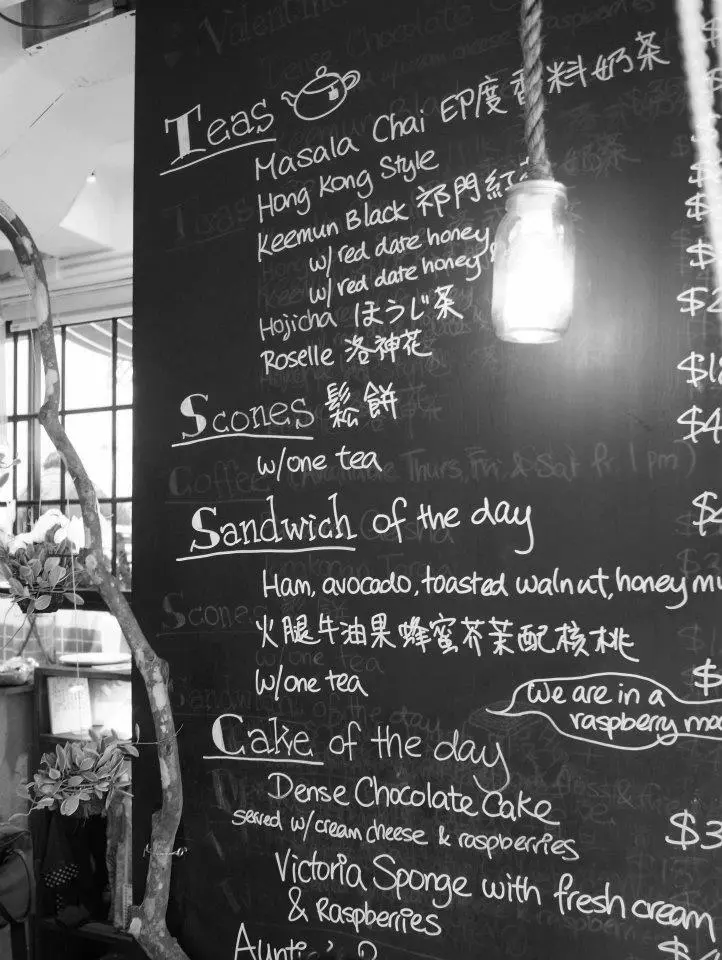 Teas
Masala Chai 印度香料奶茶
Hong Kong Style
Keemun Black 祁門紅
w/ red date honey
w/ red date honey
Hojicha ほうじ茶
Roselle 洛神花
Scones 鬆餅
w/one tea
Sandwich of the day
Ham, avocado, toasted walnut, honey mu
火腿牛油果蜂蜜芥茉配核桃
w/one tea
We are in a
raspberry moo
Cake of the day
Dense Chocolate Cake
served w/cream cheese & raspberries $3
Victoria Sponge with fresh cream
& Raspberries